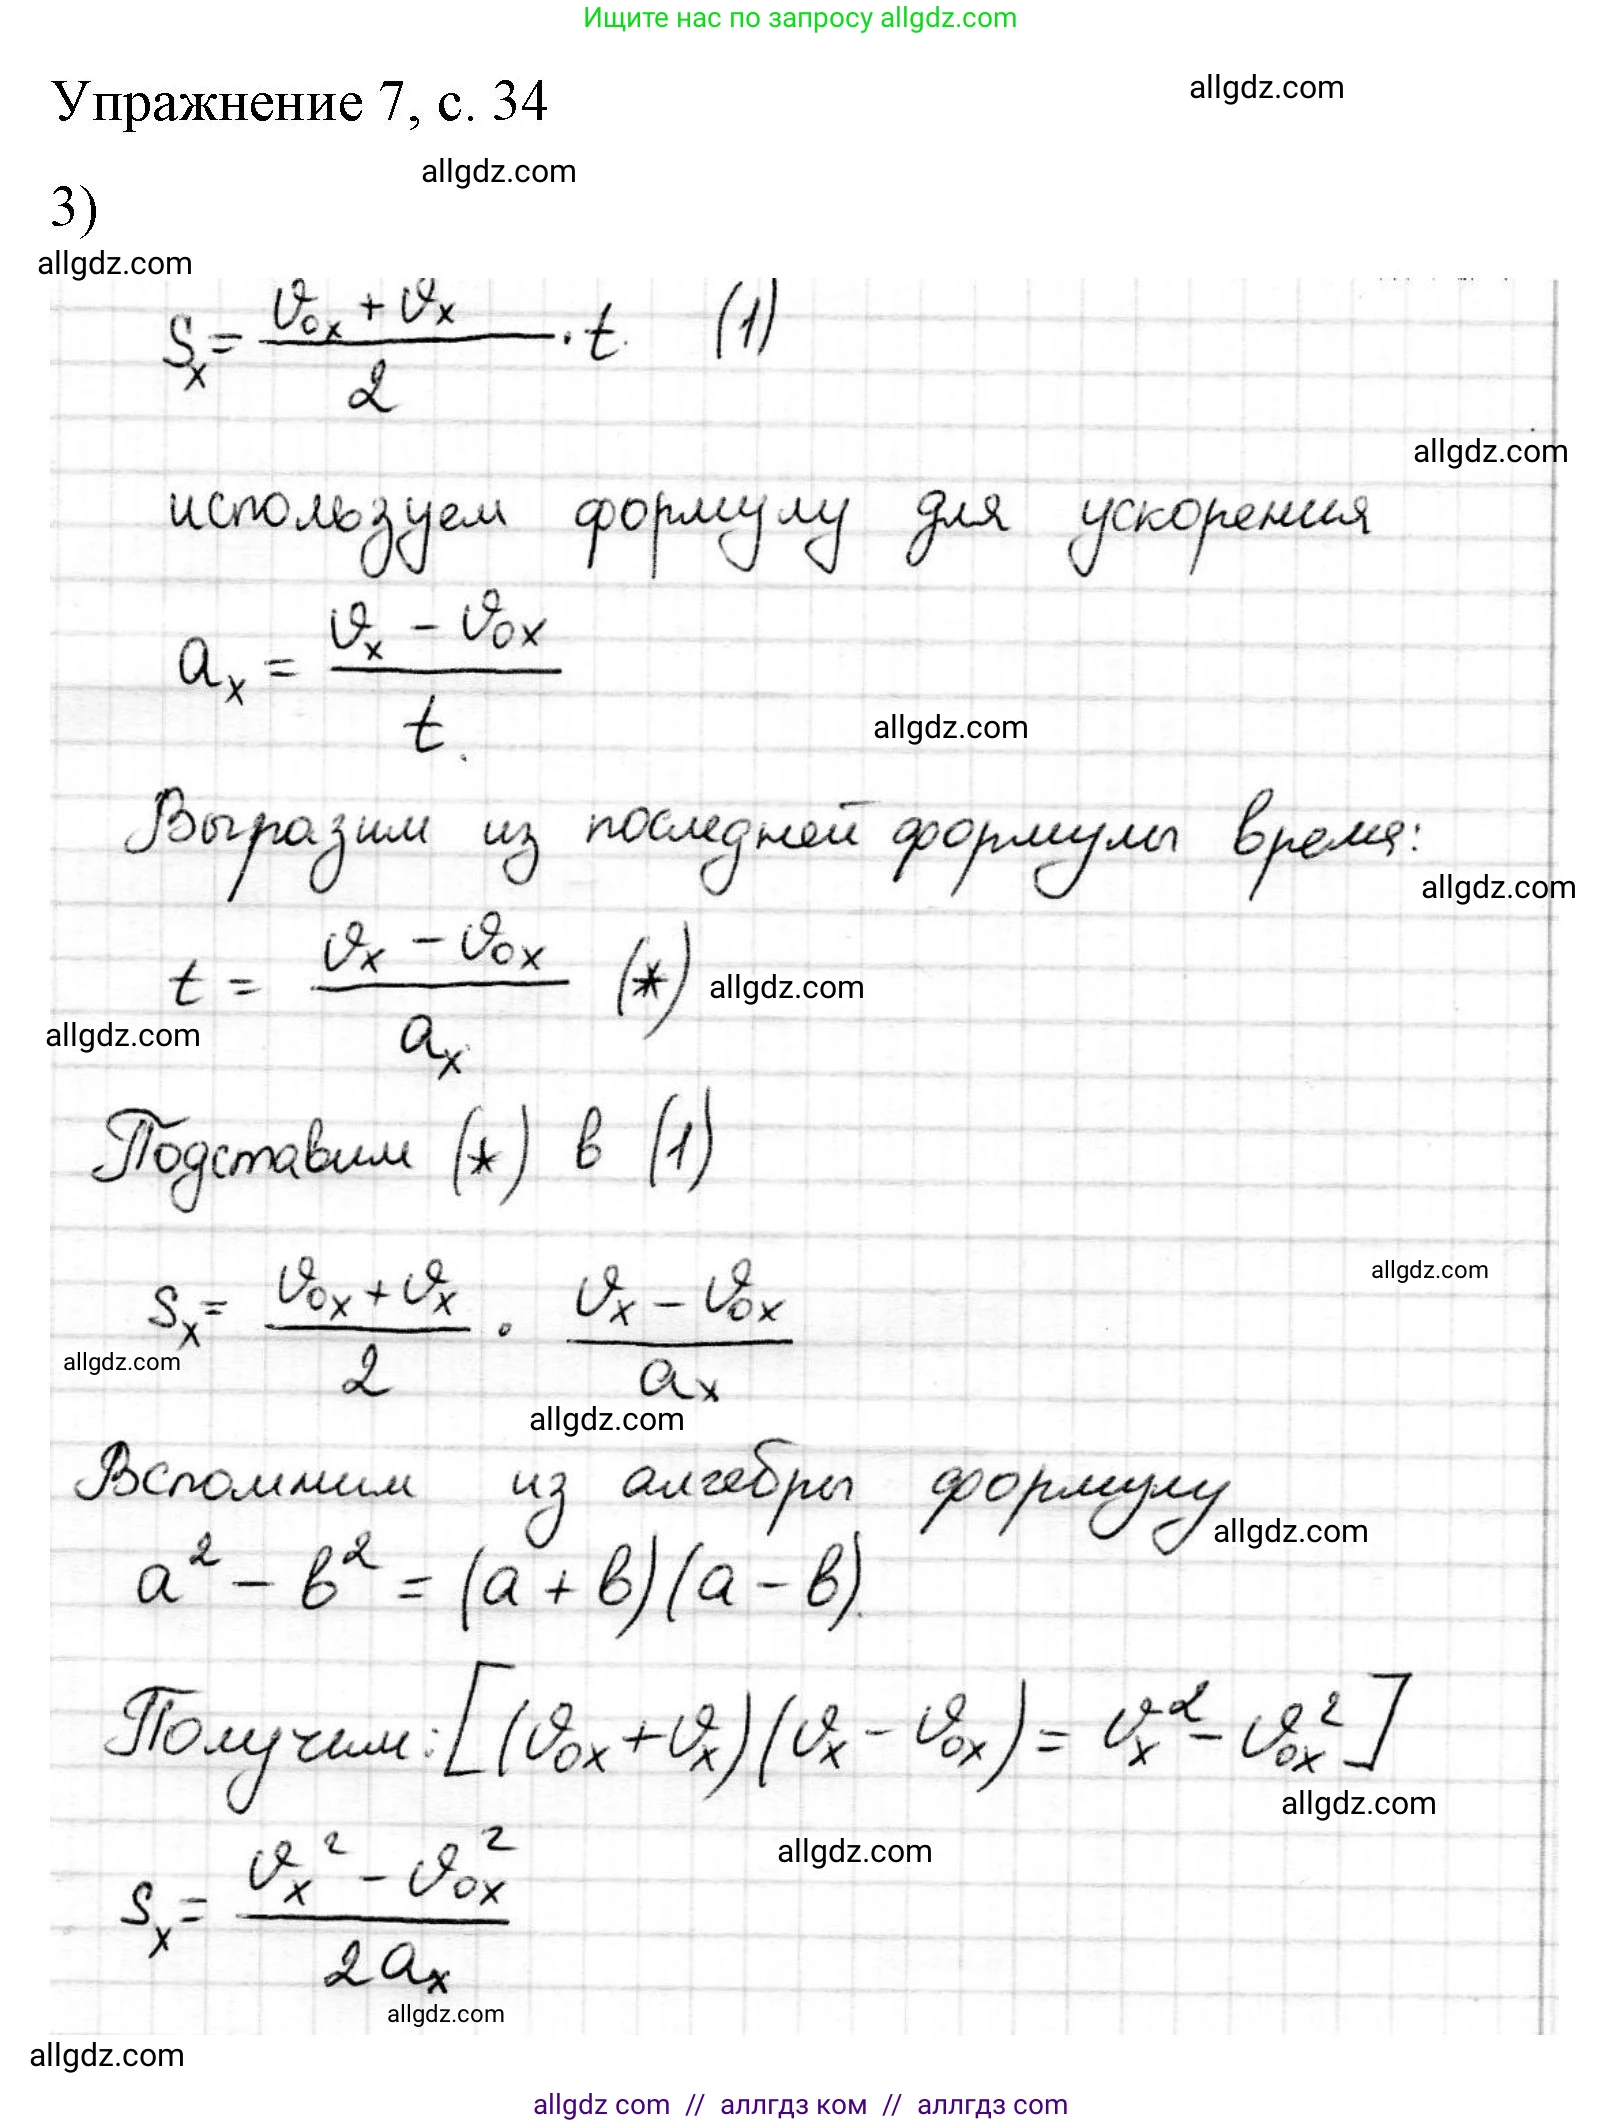 Ищите нас по запросу allgdz.com
Упражнение 7, с. 34
allgdz.com
allgdz.com
3)
allgdz.com
Sₓ = (ϑ₀ₓ + ϑₓ)/2 · t. (1)
allgdz.com
используем формулу для ускорения
aₓ = (ϑₓ − ϑ₀ₓ)/t.
allgdz.com
Выразим из последней формулы время:
allgdz.com
t = (ϑₓ − ϑ₀ₓ)/aₓ (*)
allgdz.com
allgdz.com
Подставим (*) в (1)
allgdz.com
Sₓ = (ϑ₀ₓ + ϑₓ)/2 · (ϑₓ − ϑ₀ₓ)/aₓ
allgdz.com
allgdz.com
Вспомним из алгебры формулу
allgdz.com
a² − в² = (a + в)(a − в).
Получим: [(ϑ₀ₓ + ϑₓ)(ϑₓ − ϑ₀ₓ) = ϑₓ² − ϑ₀ₓ²]
allgdz.com
allgdz.com
Sₓ = (ϑₓ² − ϑ₀ₓ²)/2aₓ
allgdz.com
allgdz.com
allgdz.com // аллгдз ком // аллгдз com